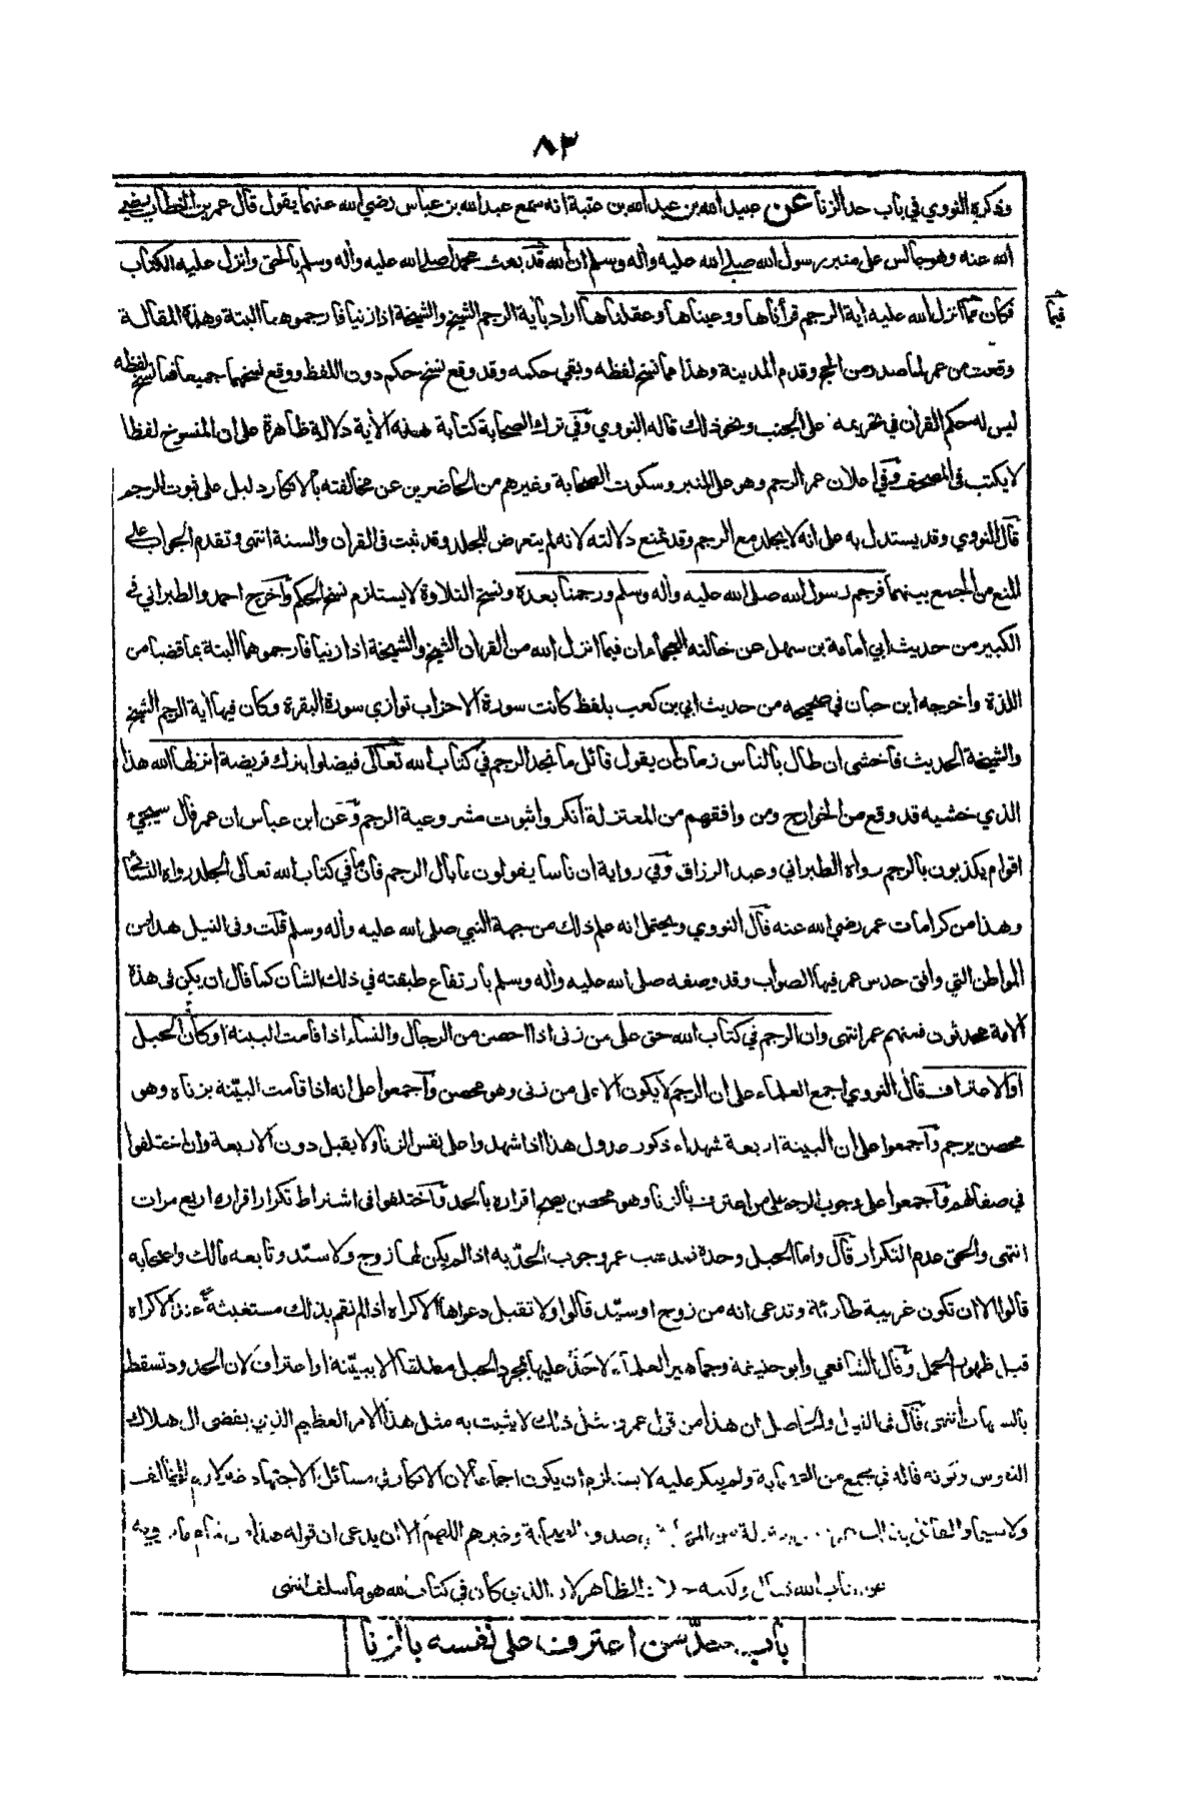 ٨٣
وذكره النووي في باب حد الزنا عن عبيد الله بن عبد الله بن عتبة انه سمع عبد الله بن عباس رضي الله عنهما يقول قال عمر بن الخطاب رضي
الله عنه وهو جالس على منبر رسول الله صلى الله عليه وأله وسلم ان الله قد بعث محمدا صلى الله عليه وأله وسلم بالحق وانزل عليه الكتاب
فكان مما انزل الله عليه أية الرجم قرأناها ووعيناها وعقلناها اراد بأية الرجم الشيخ والشيخة اذا زنيا فارجموهما البتة وهذه المقالة
فيما
وقعت من عمر لما صدر من الحج وقدم المدينة وهذا مما نسخ لفظه وبقي حكمه وقد وقع نسخ حكم دون اللفظ ووقع نسخهما جميعا فما نسخ لفظه
ليس له حكم القرأن في تحريمه على الجنب ونحو ذلك قاله النووي وفي ترك الصحابة كتابة هذه الأية دلالة ظاهرة على ان المنسوخ لفظا
لا يكتب في المصحف وفي اعلان عمر الرجم وهو على المنبر وسكوت الصحابة وغيرهم من الحاضرين عن مخالفته بالانكار دليل على ثبوت الرجم
قال النووي وقد يستدل به على انه لا يجلد مع الرجم وقد تمنع دلالته لانه لم يتعرض للجلد وقد ثبت في القران والسنة انتهى وتقدم الجواب على
المنع من الجمع بينهما فرجم رسول الله صلى الله عليه وأله وسلم ورجمنا بعده ونسخ التلاوة لا يستلزم نسخ الحكم وأخرج احمد والطبراني في
الكبير من حديث ابي امامة بن سهل عن خالته العجماء ان فيما انزل الله من القران الشيخ والشيخة اذا زنيا فارجموهما البتة بما قضيا من
اللذة واخرجه ابن حبان في صحيحه من حديث ابي بن كعب بلفظ كانت سورة الاحزاب توازي سورة البقرة وكان فيها أية الرجم الشيخ
والشيخة الحديث فاخشى ان طال بالناس زمان ان يقول قائل ما نجد الرجم في كتاب الله تعالى فيضلوا بترك فريضة انزلها الله هذا
الذي خشيه قد وقع من الخوارج ومن وافقهم من المعتزلة انكروا ثبوت مشروعية الرجم وعن ابن عباس ان عمر قال سيجيء
اقوام يكذبون بالرجم رواه الطبراني وعبد الرزاق وفي رواية ان ناسا يقولون ما بال الرجم فان ما في كتاب الله تعالى الجلد رواه النسائي
وهذا من كرامات عمر رضي الله عنه قال النووي ويحتمل انه علم ذلك من جهة النبي صلى الله عليه وأله وسلم قلت وفى النيل هذا من
المواطن التي وافق حدس عمر فيها الصواب وقد وصفه صلى الله عليه وأله وسلم بارتفاع طبقته في ذلك الشان كما قال ان يكن في هذه
الامة محدثون فمنهم عمر انتهى وان الرجم في كتاب الله حق على من زنى اذا احصن من الرجال والنساء اذا قامت البينة او كان الحبل
او الاعتراف قال النووي اجمع العلماء على ان الرجم لا يكون الا على من زنى وهو محصن وأجمعوا على انه اذا قامت البيّنة بزناه وهو
محصن يرجم وأجمعوا على ان البينة اربعة شهداء ذكور عدول هذا اذا شهدوا على نفس الزنا ولا يقبل دون الاربعة وان اختلفوا
في صفاتهم وأجمعوا على وجوب الرجم على من اعترف بالزنا وهو محصن يصح اقراره بالحد وأختلفوا في اشتراط تكرار اقراره اربع مرات
انتهى والحق عدم التكرار قال واما الحبل وحده فمذهب عمر وجوب الحدّ به اذا لم يكن لها زوج ولا سيّد وتابعه مالك واصحابه
قالوا الا ان تكون غريبة طارئة وتدعى انه من زوج او سيّد قالوا ولا تقبل دعواها الاكراه اذا لم تقم بذلك مستغيثة عند الاكراه
قبل ظهور الحمل وقال الشافعي وابو حنيفة وجماهير العلماء لا حدّ عليها بمجرد الحبل مطلقا الا ببيّنة او اعتراف لان الحدود تسقط
بالشبهات انتهى قال في النيل والحاصل ان هذا من قول عمر ومثل ذلك لا يثبت به مثل هذا الامر العظيم الذي يفضى الى هلاك
النفوس وكونه قاله في مجمع من الصحابة ولم ينكر عليه لا يستلزم ان يكون اجماعا لان الانكار في مسائل الاجتهاد غير لازم للمخالف
ولاسيما والقائل بذلك عمر وهو بمنزلة من المهابة في صدور الصحابة وغيرهم اللهم الا ان يدعى ان قوله هذا
من كتاب الله الظاهر لان الذي كان في كتاب الله هو ما سلف انتهى
باب حدّ من اعترف على نفسه بالزنا